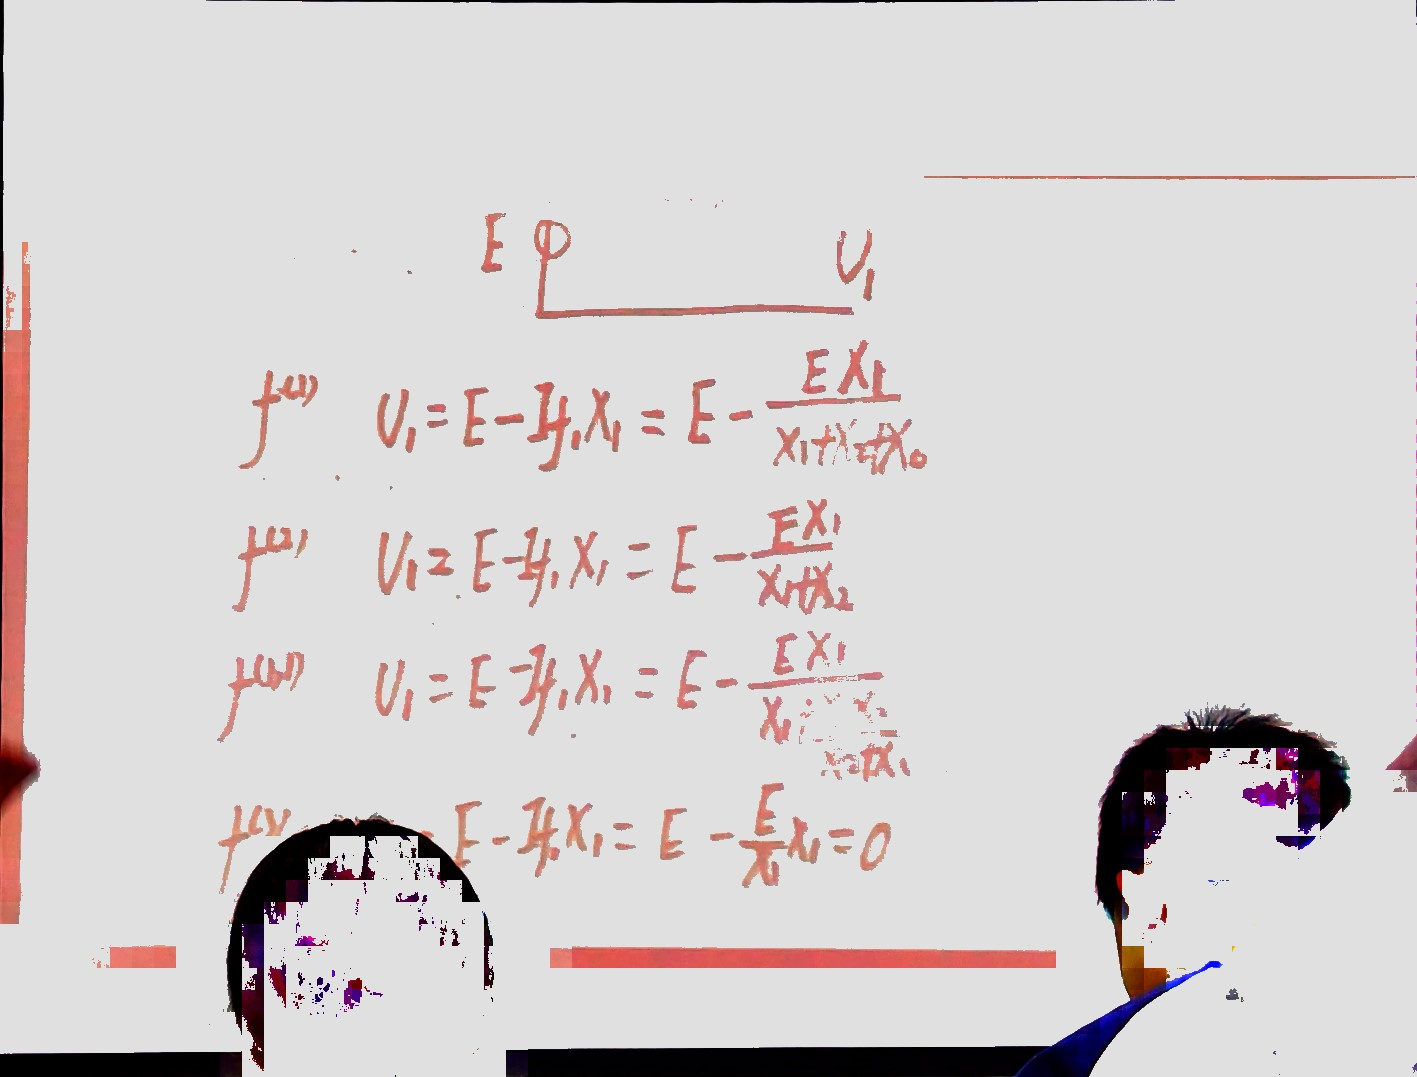 E U₁
f⁽¹⁾ U₁ = E - If₁X₁ = E - EX₁/(X₁+X₂+X₀)
f⁽²⁾ U₁ = E - If₁X₁ = E - EX₁/(X₁+X₂)
f⁽¹·¹⁾ U₁ = E - If₁X₁ = E - EX₁/X₁
E - If₁X₁ = E - E/X₁ X₁ = 0